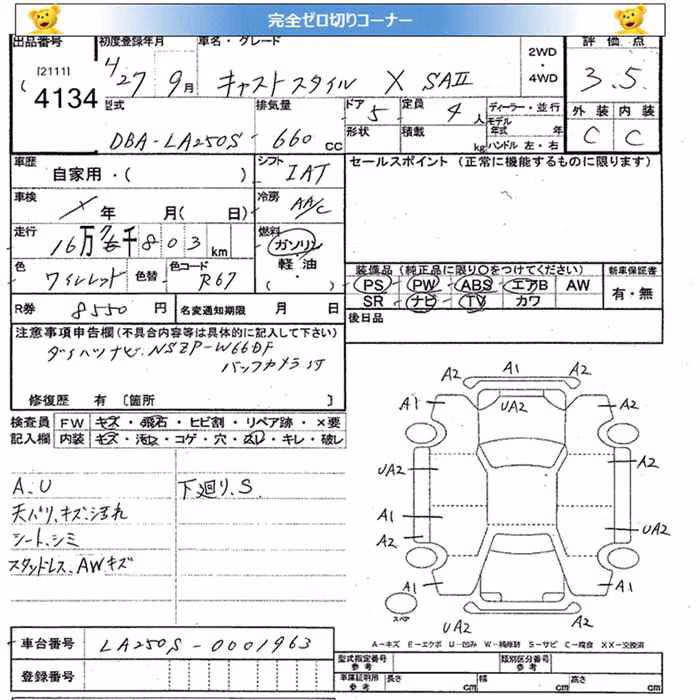 完全ゼロ切りコーナー
出品番号 初度登録年月 車名・グレード 2WD・4WD 評価点
[2111]
4134
H27年9月 キャストスタイル X SAII 3.5
型式 排気量 ドア 5 定員 4人 ディーラー・並行 外装 内装
DBA-LA250S 660cc 形状 積載 kg モデル年式 年 ハンドル 左・右 C C
車歴 自家用・( ) シフト IAT セールスポイント (正常に機能するものに限ります)
車検 年 月( 日) 冷房 AA/C
走行 16万 千803km 燃料 ガソリン
軽油
・( )
色 ワインレッド 色替 色コード R67
装備品 (純正品に限り○をつけてください) 新車保証書
PS PW ABS エアB AW 有・無
SR ナビ TV カワ
R券 8550円 名変通知期限 月 日
後日品
注意事項申告欄 (不具合内容等は具体的に記入して下さい)
ダイハツナビ. NSZP-W66DF
バックカメラ付
修復歴 有 [箇所 ]
検査員記入欄 FW キズ・飛石・ヒビ割・リペア跡・×要
内装 キズ・汚れ・コゲ・穴・スレ・キレ・破レ
A.U 下廻り.S
天バリ.キズ.汚れ
シート.シミ
スタッドレス.AWキズ
A2 A1 A2
A1 UA2 A2
UA2 A2
A1 UA2
A2
A1 A1
スペア UA2 A2
A―キズ E―エクボ U―凹み W―補修跡 S―サビ C―腐食 XX―交換済
車台番号 LA250S-0001963
登録番号
型式指定番号 参考 類別区分番号 参考
車庫証明用 参考 長さ cm 幅 cm 高さ cm